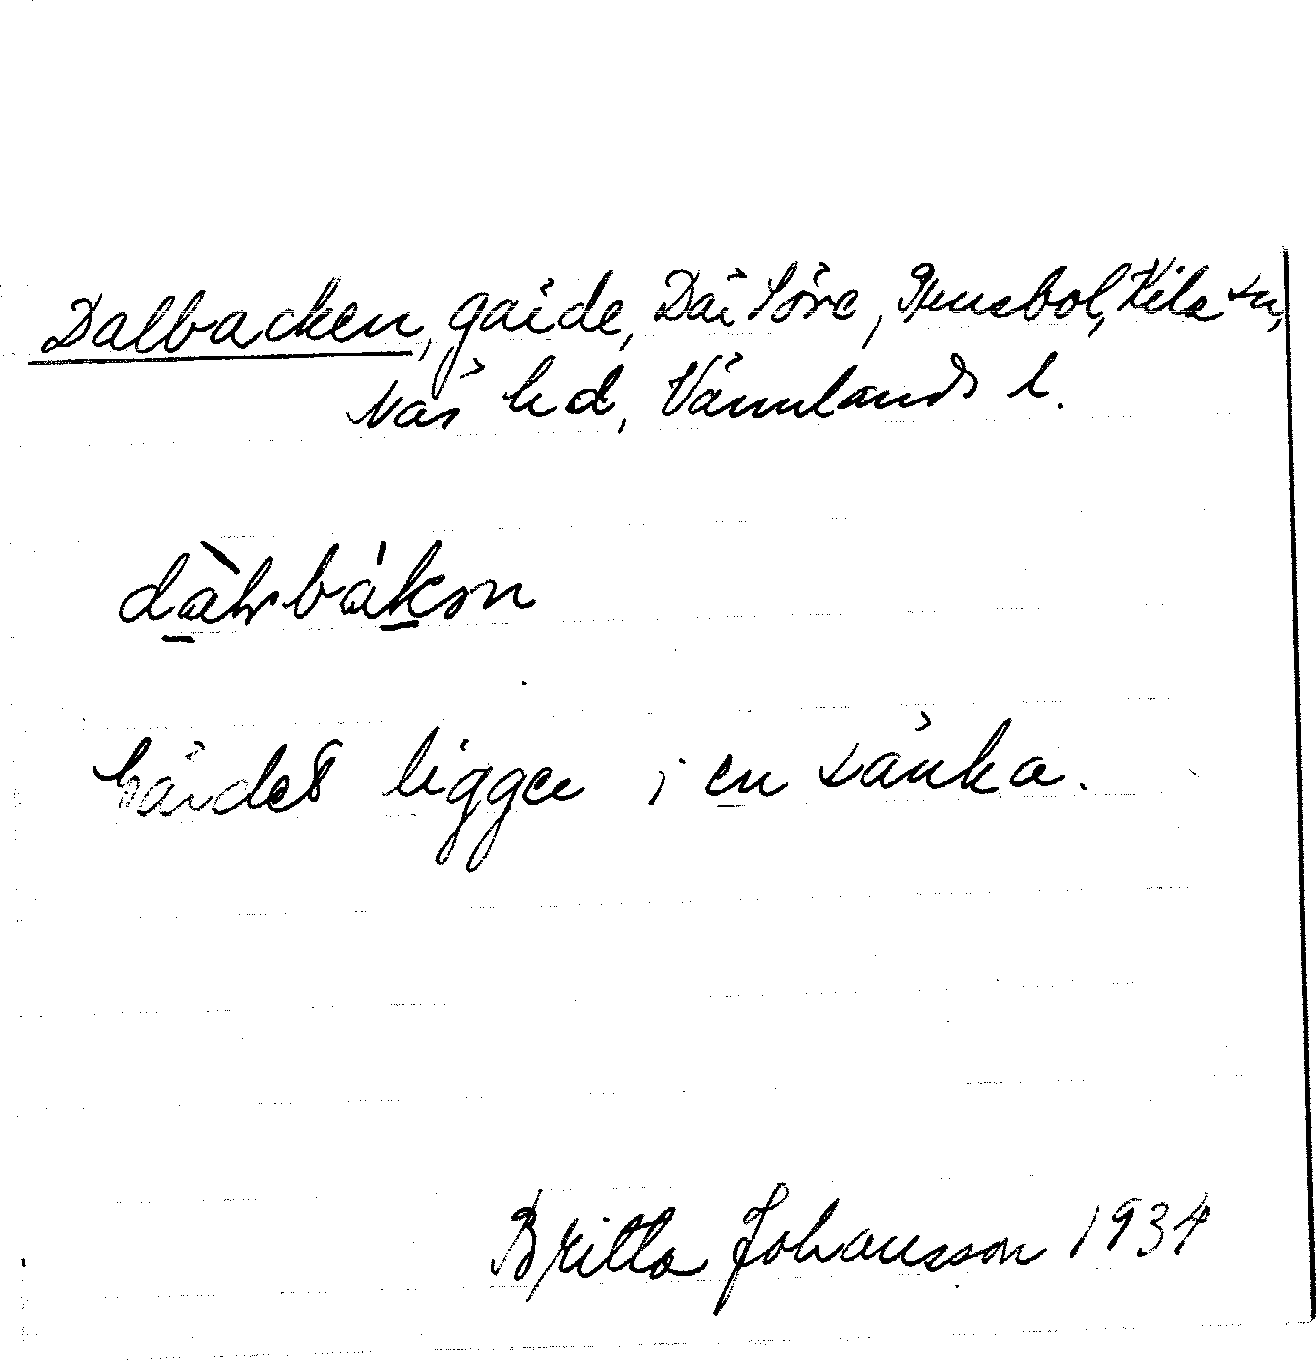 Dalbacken, gärde, Där Söre, Genebol, Kila sn,
Näs hd, Värmlands l.
dàlbákən
Gärdet ligger i en sänka.
Britta Johansson 1934